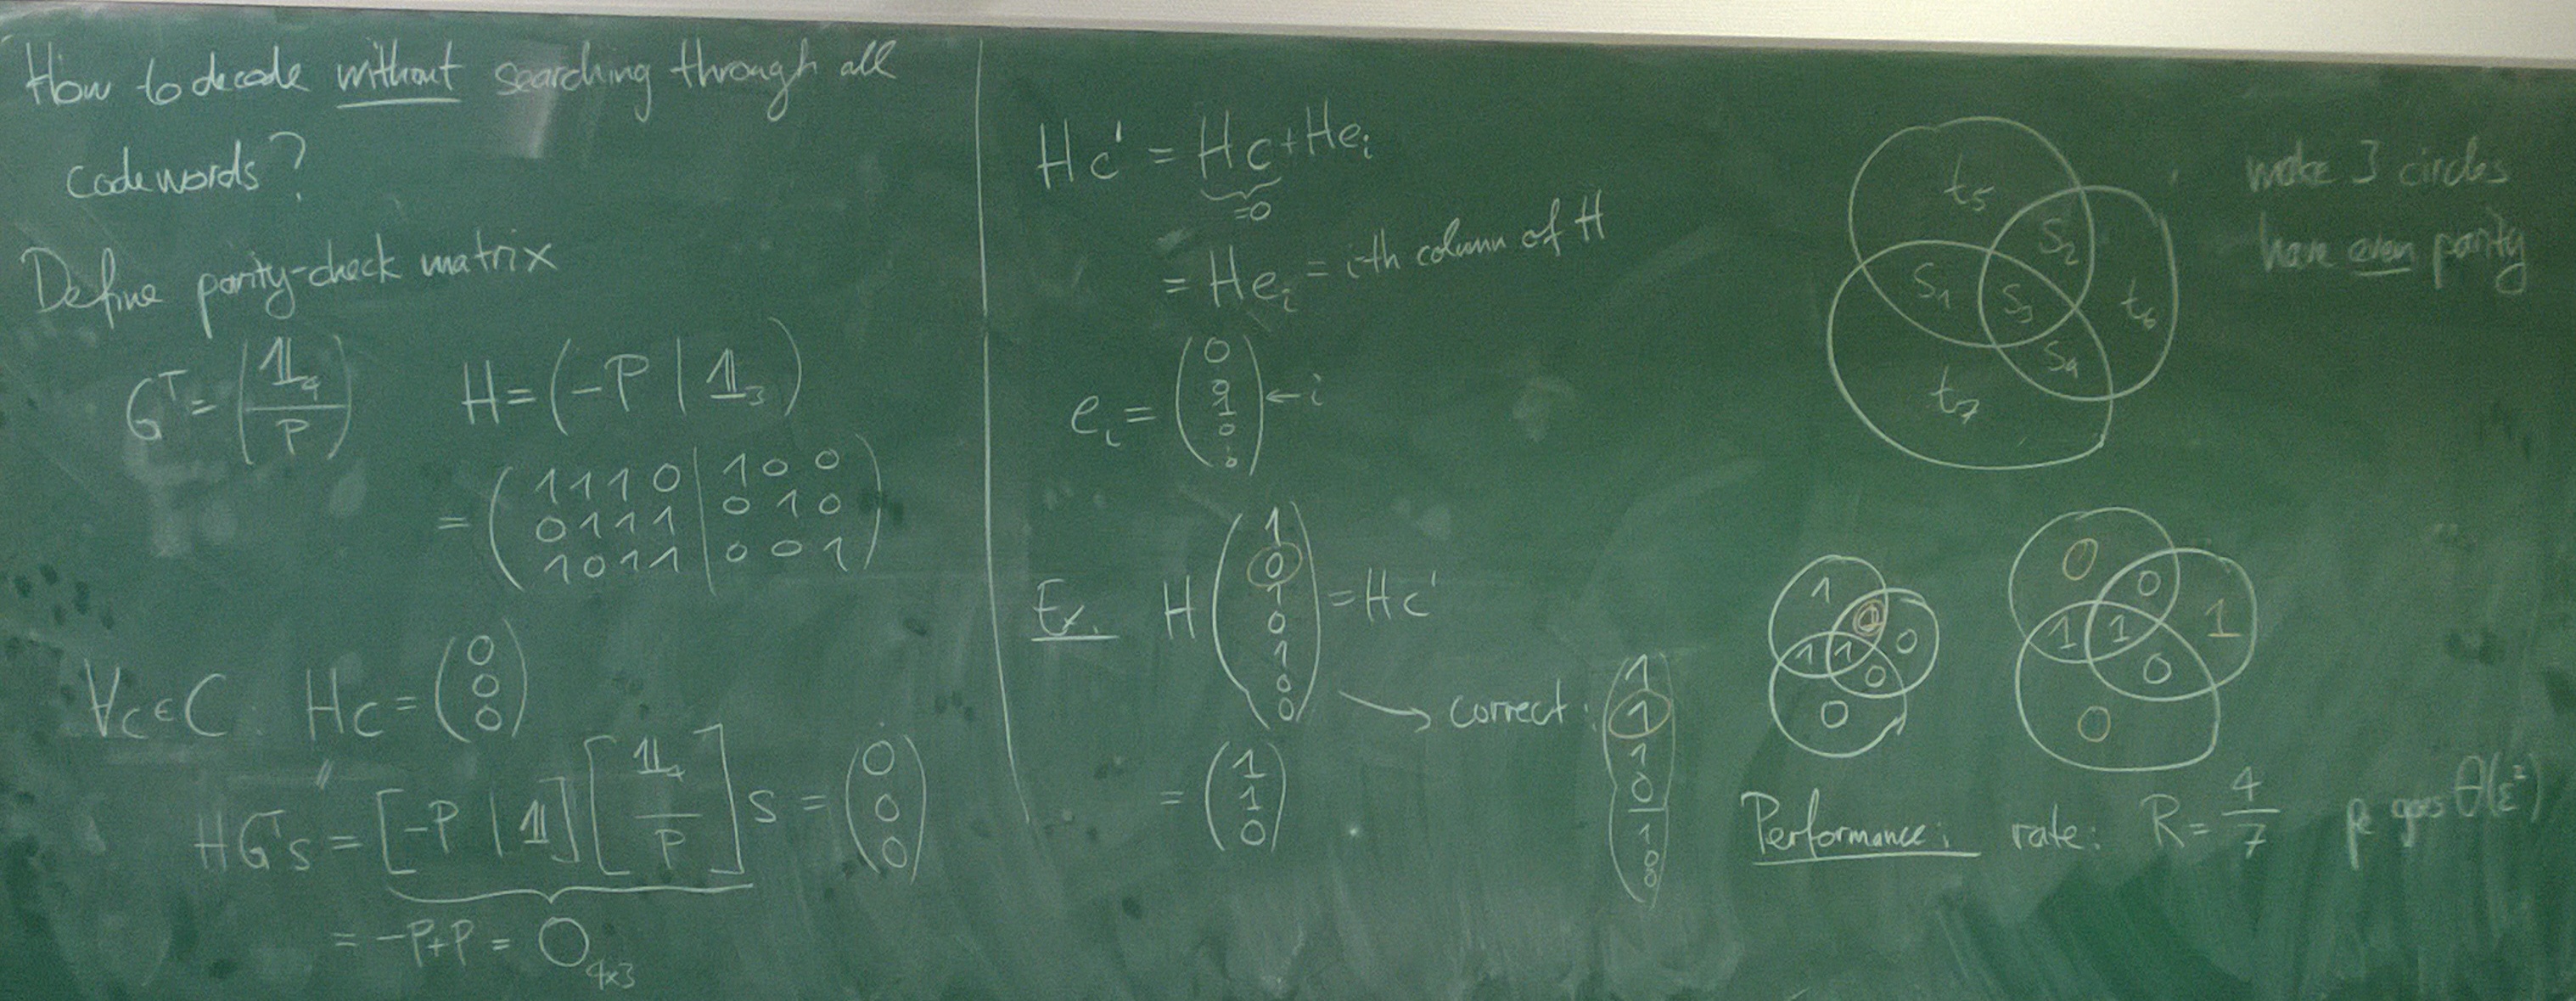 How to decode without searching through all
codewords?
Define parity-check matrix
Gᵀ = (𝟙₄ / P)   H = (-P | 𝟙₃)
= (1 1 1 0 | 1 0 0
0 1 1 1 | 0 1 0
1 0 1 1 | 0 0 1)
∀c∈C: Hc = (0 0 0)
HGᵀs = [-P | 𝟙] [𝟙₄ / P] s = (0 0 0)
= -P+P = O₄ₓ₃
Hc' = Hc + Heᵢ
=0
= Heᵢ = i-th column of H
eᵢ = (0 0 1 0 0) ← i
Ex. H (1 0 1 0 1 0 0) = Hc'
= (1 1 0)
→ correct: (1 1 1 0 1 0 0)
t₅
s₂
s₁ s₃ t₆
s₄
t₇
make 3 circles
have even parity
1
1 1 0
0
0
0
0
1 1 1
0
0
Performance: rate: R = 4/7 pe goes Θ(ε²)